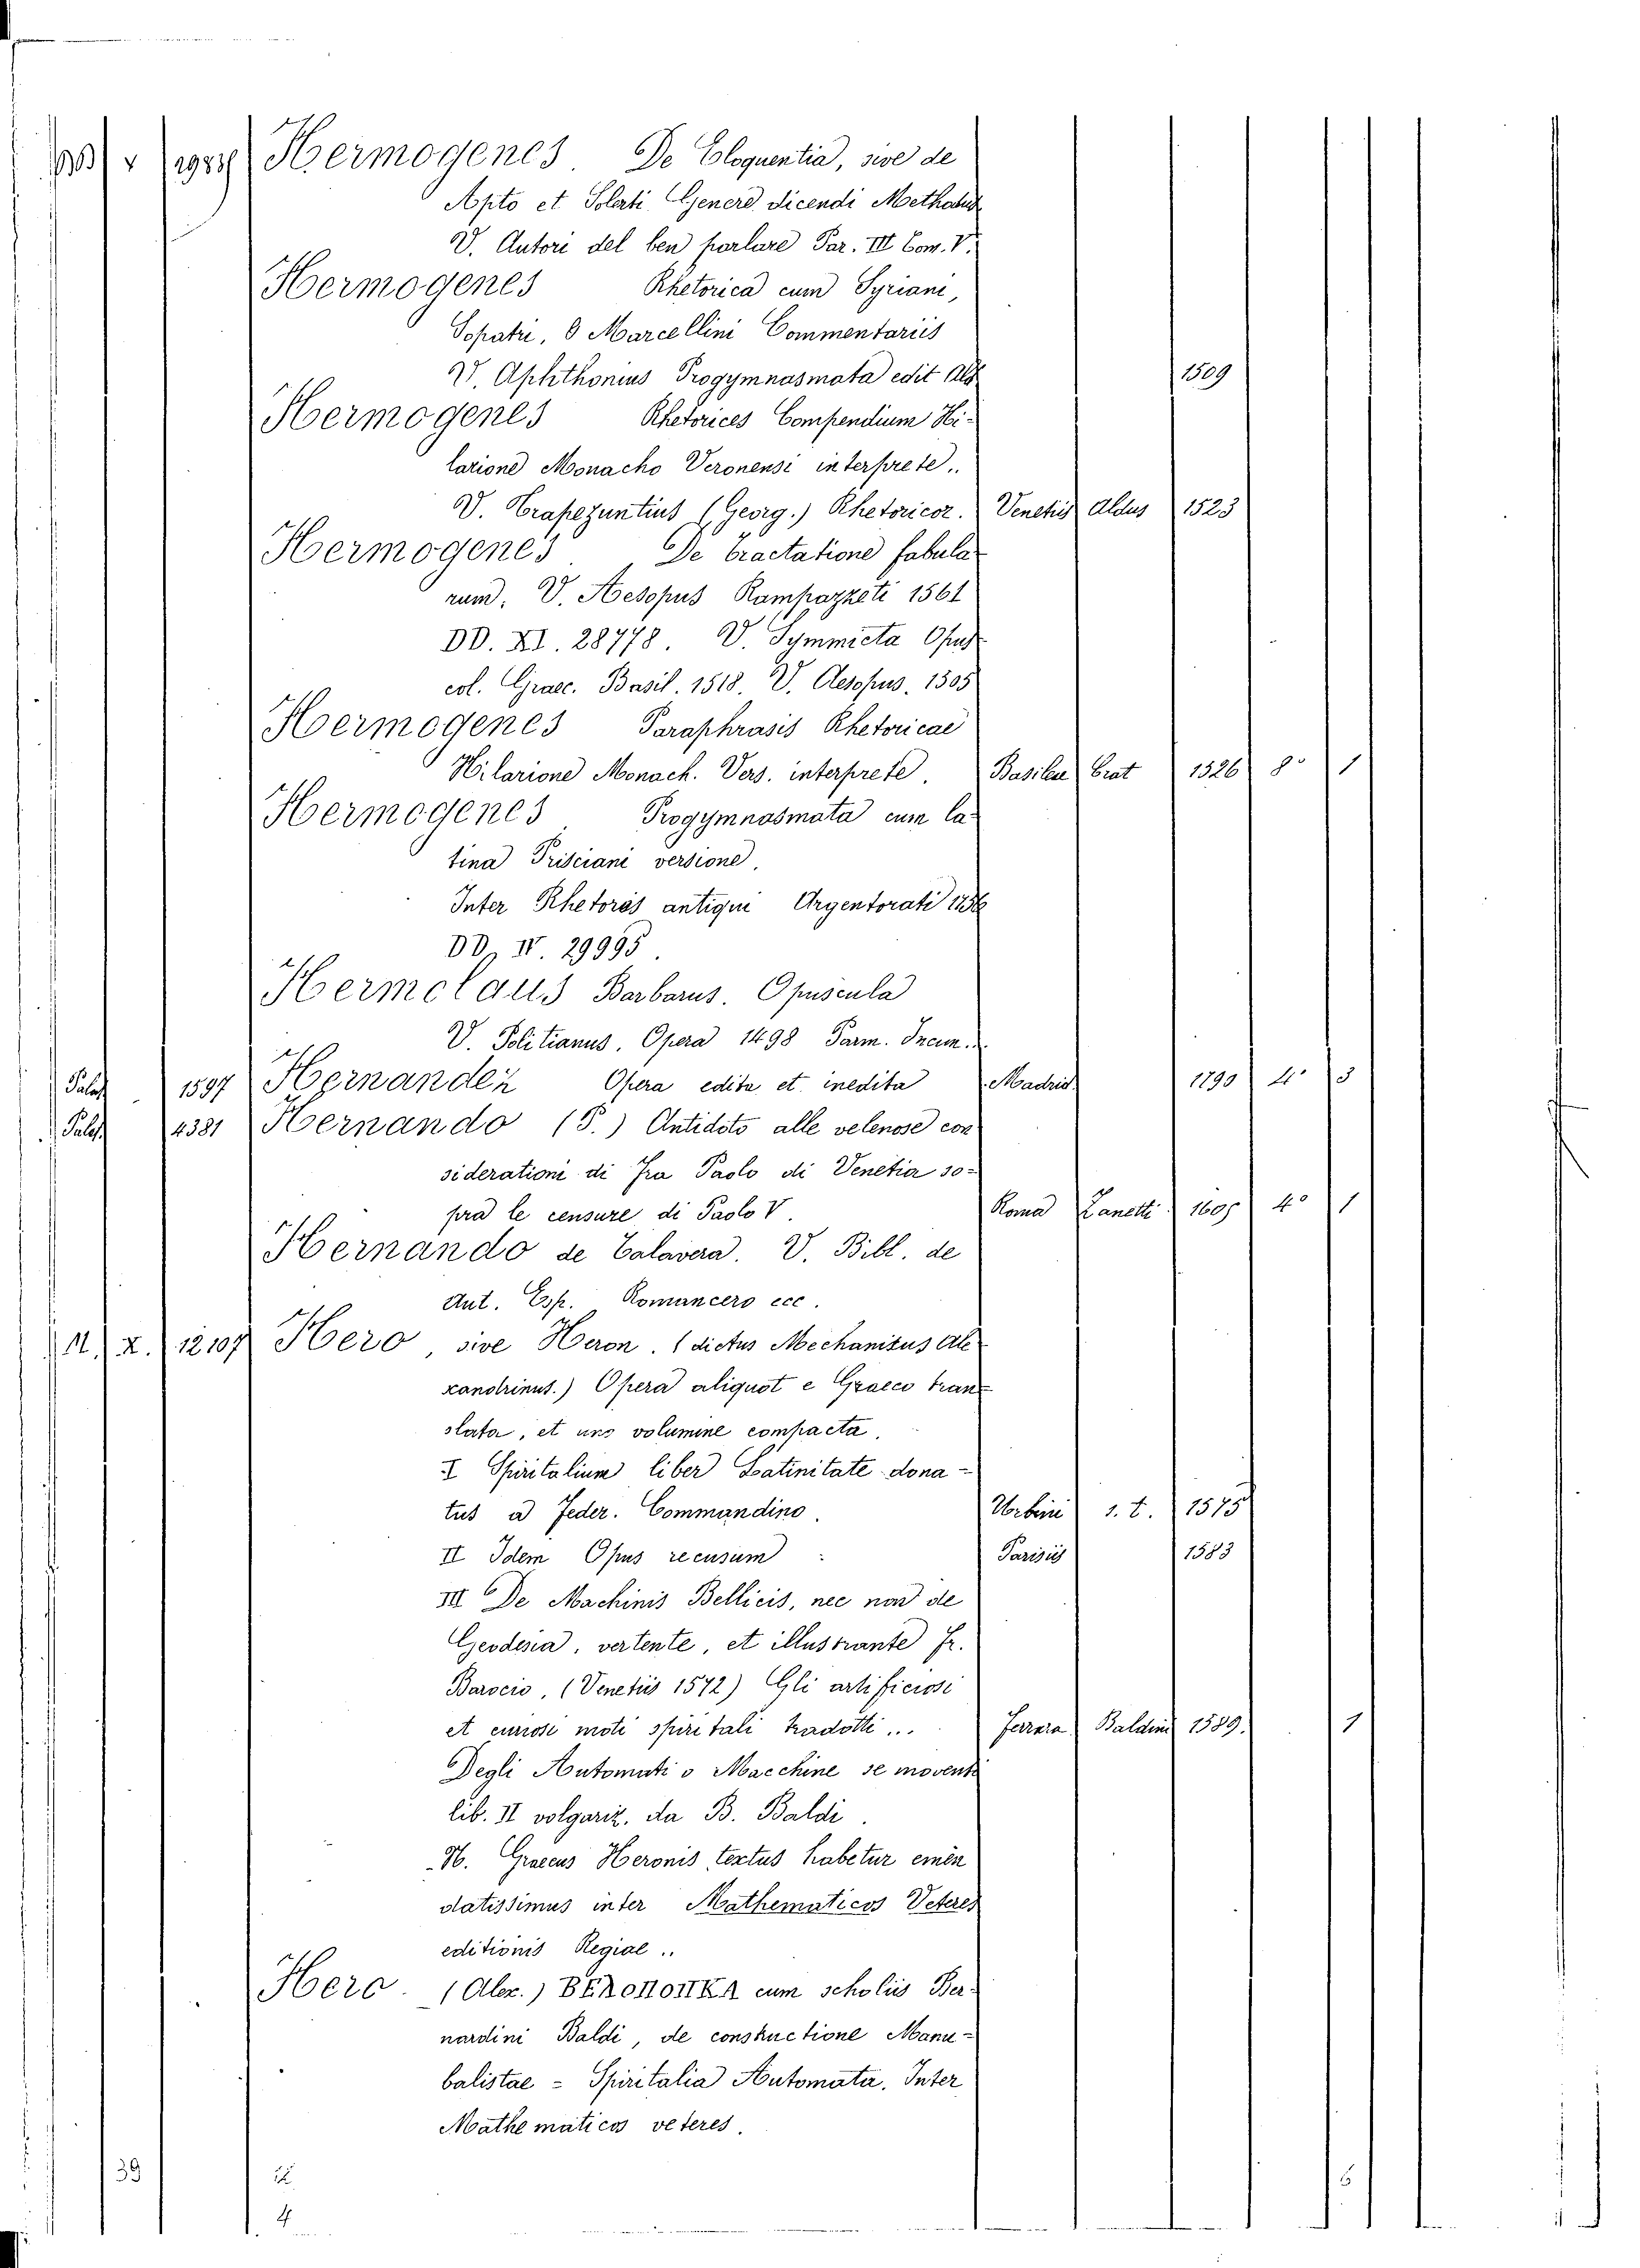 V Hermogenes. De Eloquentia, sive de
Apto et Solerti Genere dicendi Methodus
V. Autori del ben parlare Par. III Tom. V.
Hermogenes Rhetorica cum Syriani,
Sopatri, & Marcellini Commentariis
V. Aphthonius Progymnasmata edit Ald 1509
Hermogenes Rhetorices Compendium Hi-
larione Monacho Veronensi interprete..
V. Trapezuntius (Georg.) Rhetoricor. Venetiis Aldus 1523
Hermogenes De Tractatione fabula
rum. V. Aesopus Rampazzeti 1561
DD. XI. 28778. V. Symmicta Opus
col. Graec. Basil. 1518. V. Aesopus. 1505
Hermogenes Paraphrasis Rhetoricae
Hilarione Monach. Vers. interprete. Basileae Crat 1526 8° 1
Hermogenes Progymnasmata cum la-
tina Prisciani versione.
Inter Rhetores antiqui Argentorati 1756
DD. IV. 29995.
Hermolaus Barbarus. Opuscula
V. Politianus. Opera 1498 Parm. Incun.
Palat 1597 Hernandez Opera edita et inedita Madrid 1790 4° 3
Palat 4381 Hernando (P.) Antidoto alle velenose con
siderationi di Fra Paolo di Venetia so-
pra le censure di Paolo V. Roma Zanetti 1607 4° 1
Hernando de Talavera. V. Bibl. de
Aut. Esp. Romancero ecc.
11. X. 12107 Hero, sive Heron. (dictus Mechanicus Ale
xandrinus.) Opera aliquot e Graeco tran=
slata, et uno volumine compacta.
I Spiritalium liber Latinitate dona-
tus a Feder. Commandino. Urbini s. t. 1575
II Idem Opus recusum : Parisiis 1583
III De Machinis Bellicis, nec non de
Geodesia, vertente, et illustrante Fr.
Barocio, (Venetiis 1572) Gli artificiosi
et curiosi moti spiritali tradotti ... Ferrara Baldini 1589. 1
Degli Automati o Macchine se moventi
lib. II volgariz. da B. Baldi.
N. Graecus Heronis textus habetur emen
datissimus inter Mathematicos Veteres
editionis Regiae..
Hero. (Alex.) ΒΕΛΟΠΟΙΙΚΑ cum scholiis Ber-
nardini Baldi, de constructione Manu-
balistae = Spiritalia Automata. Inter
Mathematicos veteres.
39
4